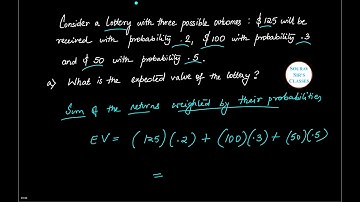 Consider a Lottery with three possible outcomes : $125 will be
received with probability .2, $100 with probability .3
and $50 with probability .5.
a) What is the expected value of the lottery?
SOURAV
SIR'S
CLASSES
Sum of the returns weighted by their probabilities
EV = (125)(.2) + (100)(.3) + (50)(.5)
=